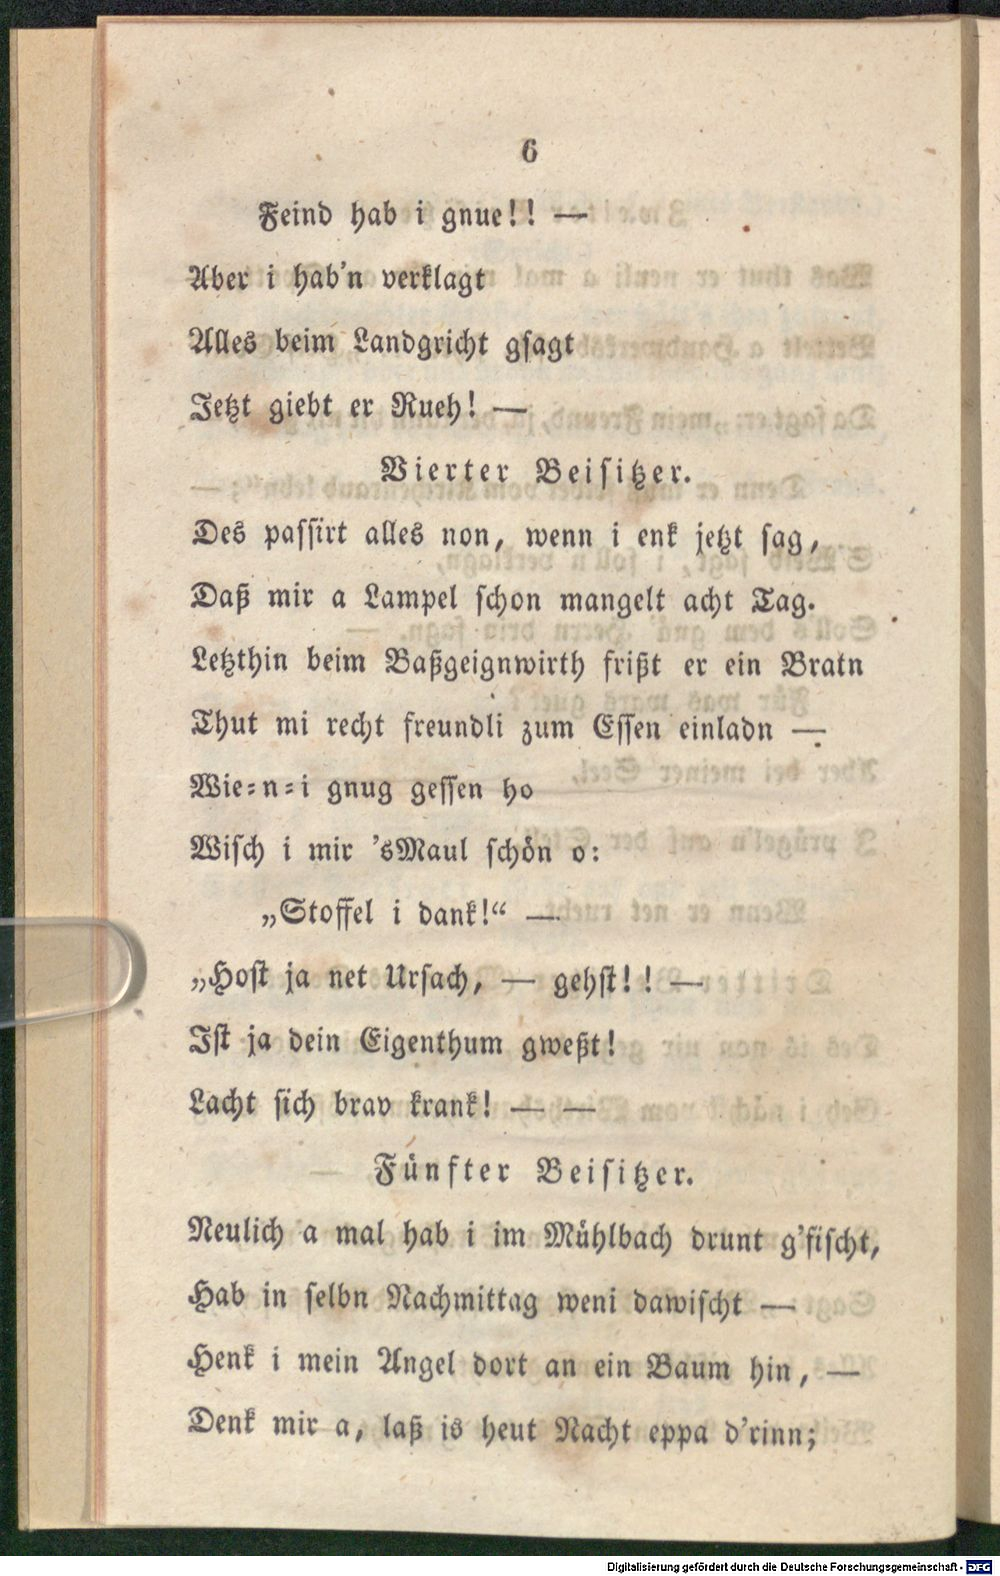 6
Feind hab i gnue!! —
Aber i hab'n verklagt
Alles beim Landgricht gsagt
Jetzt giebt er Rueh! —
Vierter Beisitzer.
Des passirt alles non, wenn i enk jetzt sag,
Daß mir a Lampel schon mangelt acht Tag.
Letzthin beim Baßgeignwirth frißt er ein Bratn
Thut mi recht freundli zum Essen einladn —
Wie=n=i gnug gessen ho
Wisch i mir 'sMaul schön o:
„Stoffel i dank!“ —
„Host ja net Ursach, — gehst!! —
Ist ja dein Eigenthum gweßt!
Lacht sich brav krank! — —
Fünfter Beisitzer.
Neulich a mal hab i im Mühlbach drunt g'fischt,
Hab in selbn Nachmittag weni dawischt —
Henk i mein Angel dort an ein Baum hin, —
Denk mir a, laß is heut Nacht eppa d'rinn;
Digitalisierung gefördert durch die Deutsche Forschungsgemeinschaft - DFG